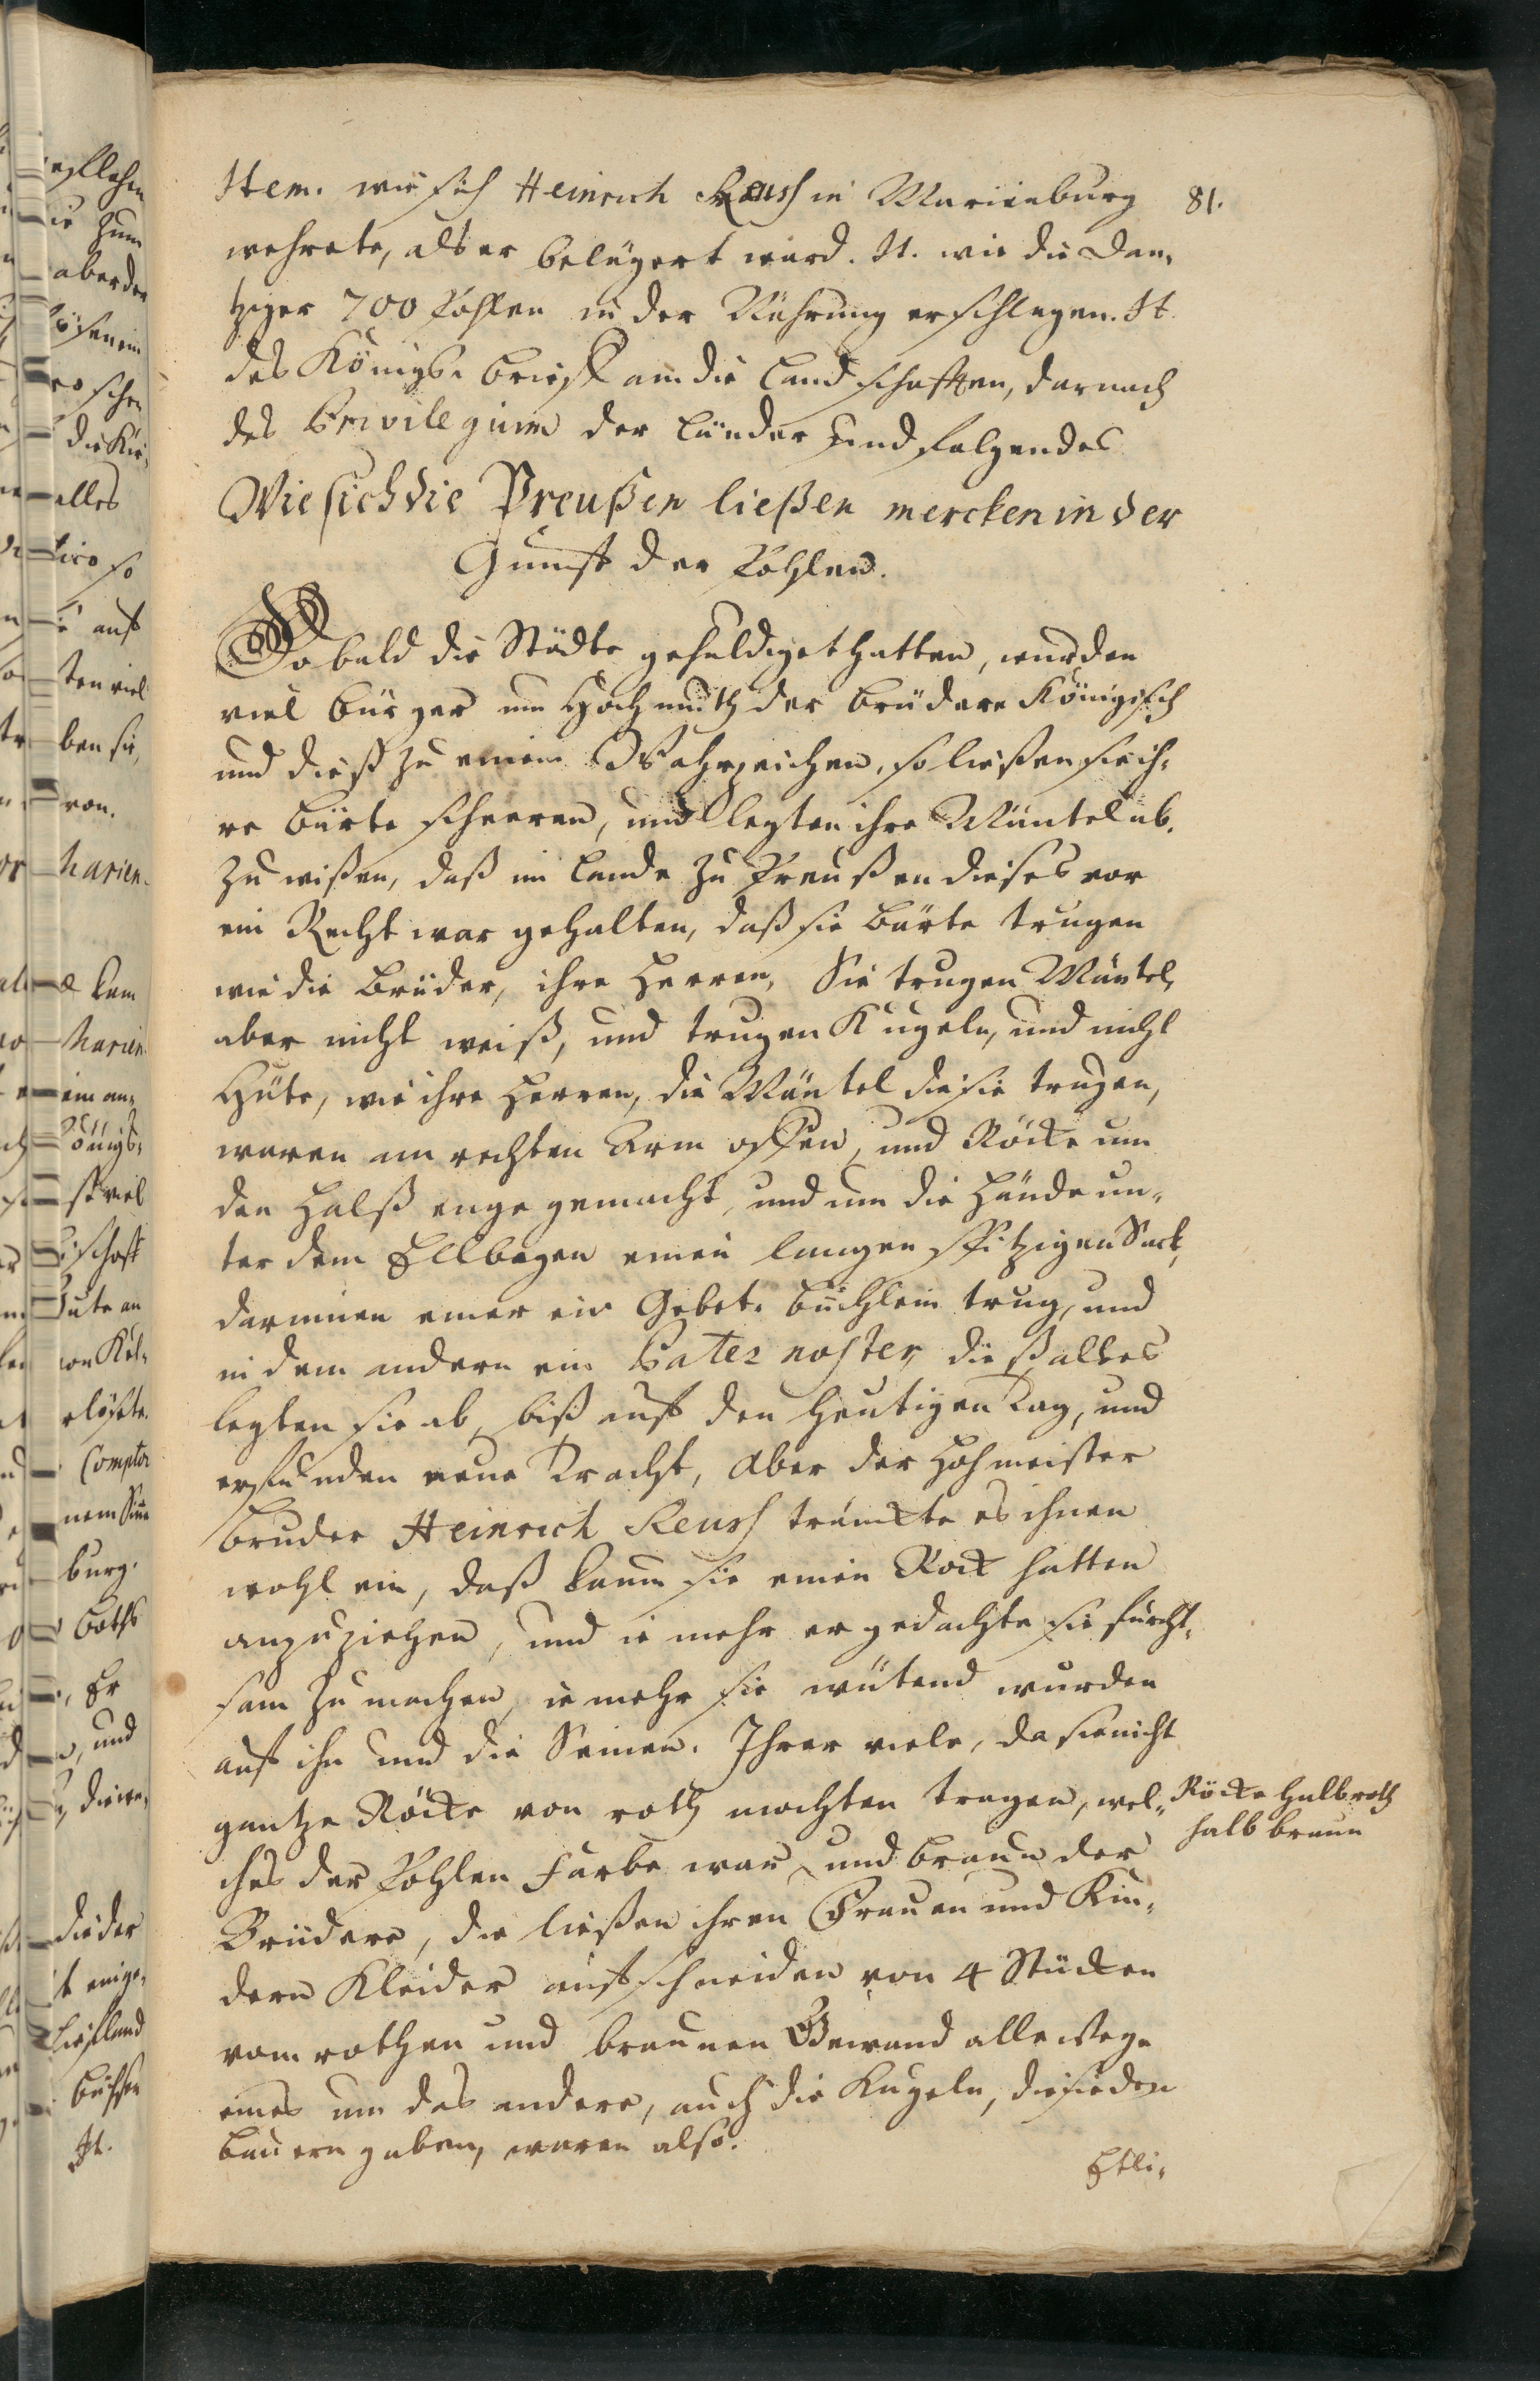 Item. wie sich Heinrich Reuss in Marienburg
81.
wehrete, als er belägert ward. It. wie die Dan-
tziger 700 Pohlen in der Nährung erschlagen. It.
des Königs. brieff an die Landschafften, darnach
des Privilegium der Länder und folgendes
Wie sich die Preußen ließen mercken in der
Gunst der Pohlen.
So bald die Städte gehuldiget hatten, wurden
viel bürger um Hochmuth der brüdere Königisch
und dieß zu einem Wahrzeichen, so ließen sie ih-
re bärte scheeren, und legten ihre Mäntel ab.
Zu wißen, daß im Lande zu Preußen dieses vor
ein Recht war gehalten, daß sie bärte trugen
wie die brüder, ihre Herren, Sie trugen Mäntel,
aber nicht weiß, und trugen Kugeln, und nicht
Hüte, wie ihre Herren, die Mäntel die sie trugen,
waren am rechten Arm offen, und Röcke um
den Halß enge gemacht, und um die Hände un-
ter dem Ellbogen einen langen spitzigen Sack,
darinnen einer ein Gebet-büchlein trug, und
in dem andern ein Pater noster, dieß alles
legten sie ab, biß auf den heutigen Tag, und
erfunden neue Tracht, Aber der Hohmeister
bruder Heinrich Reuss tränckte es ihnen
wohl ein, daß kaum sie einen Rock hatten
anzuziehen, und ie mehr er gedachte sie furcht-
sam zu machen, ie mehr sie wütend wurden
auf ihn und die Seinen. Ihrer viele, da sie nicht
gantze Röcke von roth mochten tragen, wel-
Röcke halb roth
halb braun
ches der Pohlen Farbe war, und braun der
Brüdere, die ließen ihren Frauen und Kin-
dern Kleider aufschneiden von 4 Stücken
vom rothen und braunen Gewand allewege
eines um das andere, auch die Kugeln, die sie den
bauern gaben, waren also.
Etli-